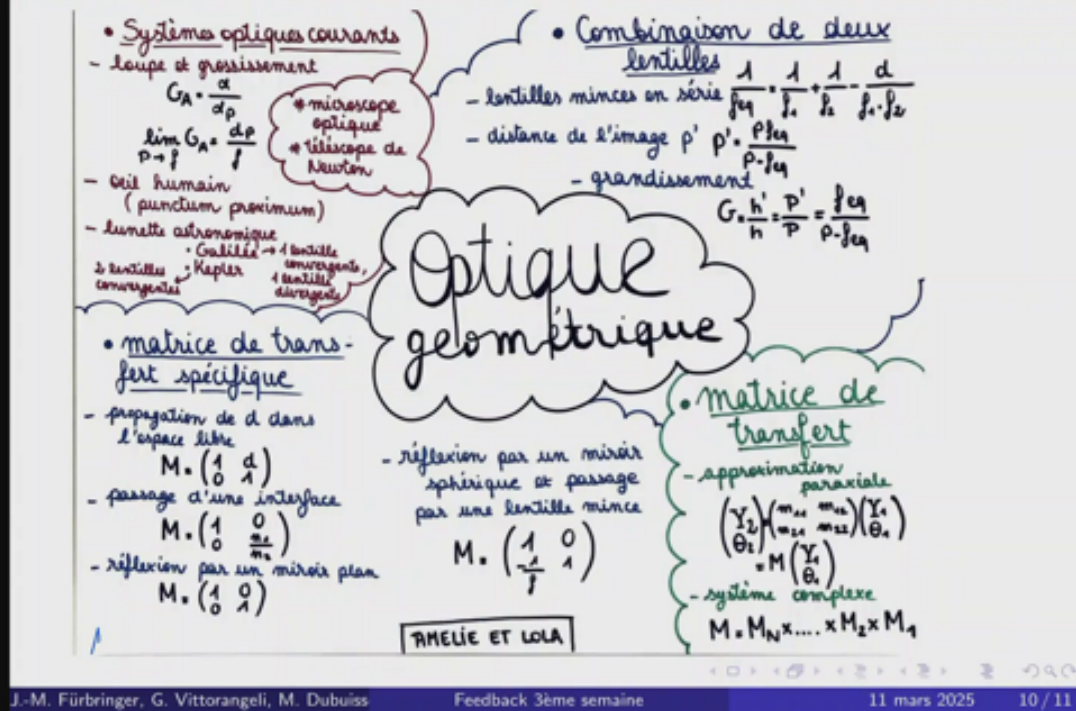 • Systèmes optiques courants
- loupe et grossissement
G_A = α / d_p
lim_{p→f} G_A = d_p / f
* microscope optique
* téléscope de Newton
- oeil humain
(punctum proximum)
- lunette astronomique
· Galilée → 1 lentille convergente, 1 lentille divergente
· Kepler → 2 lentilles convergentes
• Combinaison de deux
lentilles
- lentilles minces en série 1/f_eq = 1/f_1 + 1/f_2 - d/(f_1 · f_2)
- distance de l'image p' p' = p f_eq / (p - f_eq)
- grandissement
G = h'/h = p'/p = f_eq / (p - f_eq)
Optique
geométrique
• matrice de trans-
fert spécifique
- propagation de d dans
l'espace libre
M = (1 d; 0 1)
- passage d'une interface
M = (1 0; 0 n_1/n_2)
- réflexion par un miroir plan
M = (1 0; 0 1)
- réflexion par un miroir
sphérique et passage
par une lentille mince
M = (1 0; -1/f 1)
• matrice de
transfert
- approximation
paraxiale
(Y_2; θ_2) = (m_11 m_12; m_21 m_22)(Y_1; θ_1)
= M (Y_1; θ_1)
- système complexe
M = M_N × .... × M_2 × M_1
AMELIE ET LOLA
J.-M. Fürbringer, G. Vittorangeli, M. Dubuiss
Feedback 3ème semaine
11 mars 2025
10 / 11